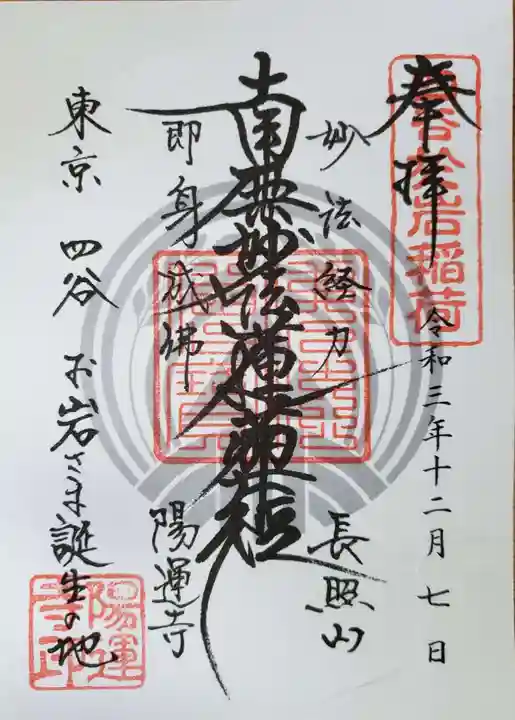 奉拝
四谷於岩稲荷
令和三年十二月七日
妙法経力
長照山
南無妙法蓮華経
即身成佛
陽運寺
東京 四谷 お岩さま誕生の地
陽運寺印